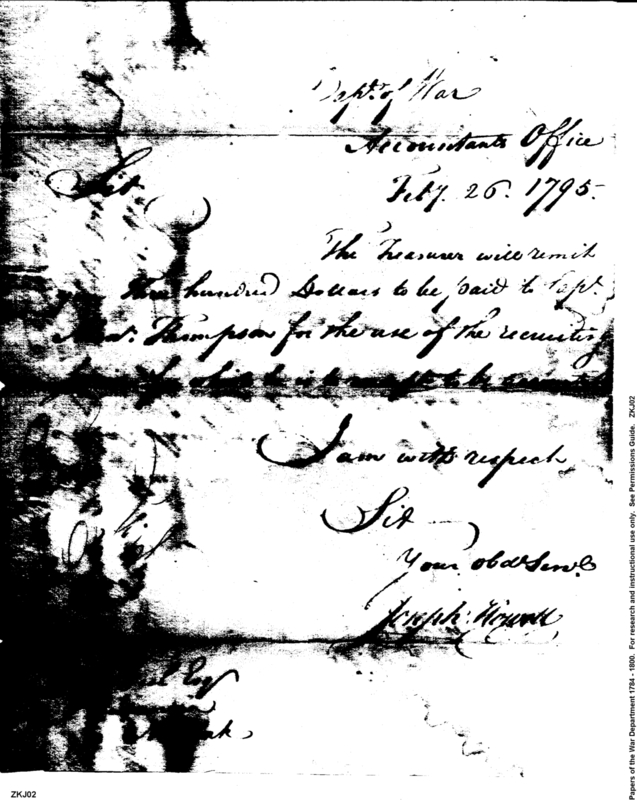 Depr. of War
Accountants Office
Feby. 26. 1795.
Sir
The Treasurer will remit
Three hundred Dollars to be paid to Capt.
Thompson for the use of the recruiting
for which he is to be
I am with respect
Sir
Your obdt. Servt.
Joseph Howell
Esq
ZKJ02
Papers of the War Department 1784 - 1800. For research and instructional use only. See Permissions Guide. ZKJ02